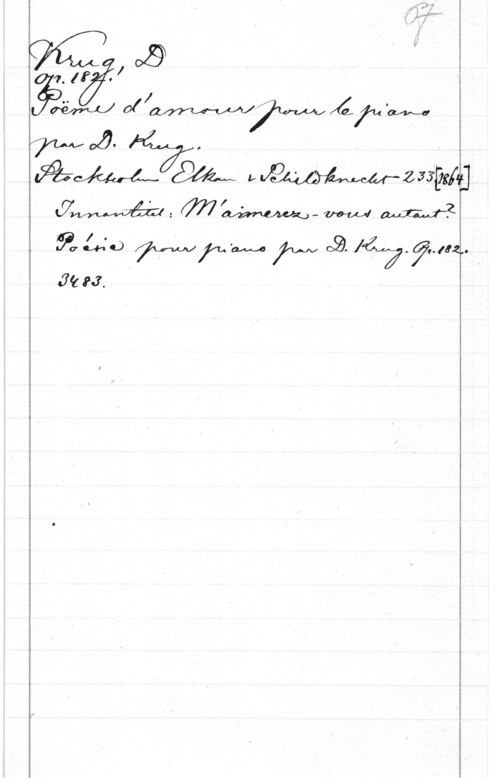 67
Krug, D
op. 182.
Poëme d'amour pour le piano
par D. Krug.
Stockholm Elkan & Schildknecht 233 [1864]
Innantitel: M'aimerez-vous autant?
Poésie pour piano par D. Krug. Op. 182.
3483.